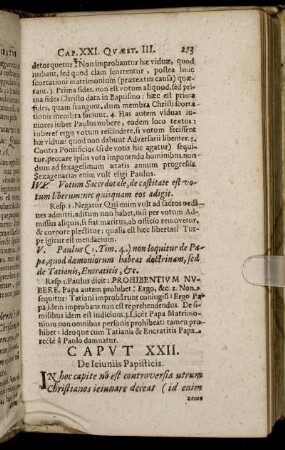 CAP. XXI. QVÆST. III. 273
detorquetur? Non improbantur hæ viduæ, quod
nubant, sed quod clam scortentur, postea huic
scortationi matrimonium (prætextus causa) quæ-
rant 3. Prima fides, non est votum aliquod, sed pri-
ma fides Christo data in Baptismo: hæc est prima
fides, quam frangunt, dum membra Christi scorta-
tionis membra faciunt. 4. Has autem viduas iu-
niores iubet Paulus nubere, eodem loco textus:
iubere! ergo votum rescindere, si votum fecissent
hæ viduæ quod non dabunt Adversarii libenter. 5.
Contra Pontificios (si de votis hic agatur) sequi-
tur, peccare ipsos vota imponendo hominibus, nondum
ad sexagesimum ætatis annum progressis
Sexagenarias enim vult eligi Paulus.
IV. Votum Sacerdotale, de castitate est vo-
tum liberum: nec quisquam eos adigit.
Resp. 1. Negatur Qui enim vult ad sacros ordi-
nes admitti, aditum non habet, nisi per votum. Ad-
missus aliquis, si fiat maritus, ab officio removetur,
& corpore plectitur: qualis est hæc libertas? Tur-
pe igitur est mendacium.
V. Paulus (1. Tim. 4.) non loquitur de Pa-
pa, quod dæmoniorum habeat doctrinam, sed
de Tatianis, Encratitis, &c.
Resp. 1. Paulus dicit: PROHIBENTIVM NV-
BERE. Papa autem prohibet: Ergo, &c. 2. Non
sequitur: Tatiani improbârunt coniugiũ: Ergo Pa-
pa idem improbans non est reprehendendus. De si-
milibus idem est iudicium. 3. Licèt Papa Matrimo-
nium non omnibus personis prohibeat: tamen pro-
hibet: ideoque cum Tatianis & Encratitis Papa
rectè à Paulo damnatur.
CAPVT XXII.
De Ieiuniis Papisticis.
IN hoc capite nõ est controversia utrum
Christianos ieiunare deceat (id enim